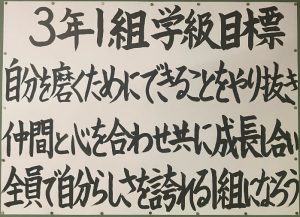 3年1組学級目標
自分を磨くためにできることをやり抜き
仲間と心を合わせ共に成長し合い
全員で自分らしさを誇れる1組になろう